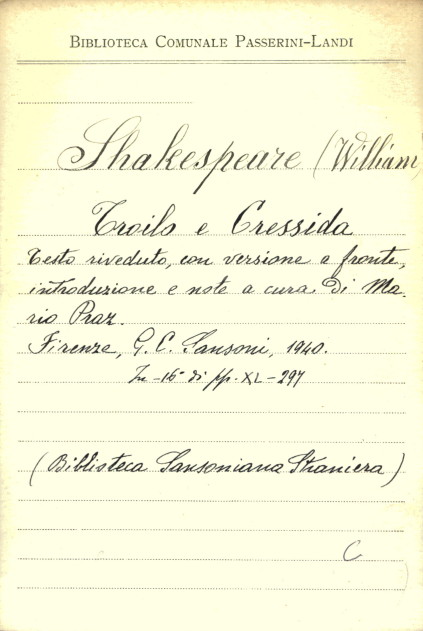 BIBLIOTECA COMUNALE PASSERINI-LANDI
Shakespeare (William
Troilo e Cressida
Testo riveduto, con versione a fronte,
introduzione e note a cura di Ma-
rio Praz.
Firenze, G. C. Sansoni, 1940.
In-16° di pp. XL-297
(Biblioteca Sansoniana Straniera)
C